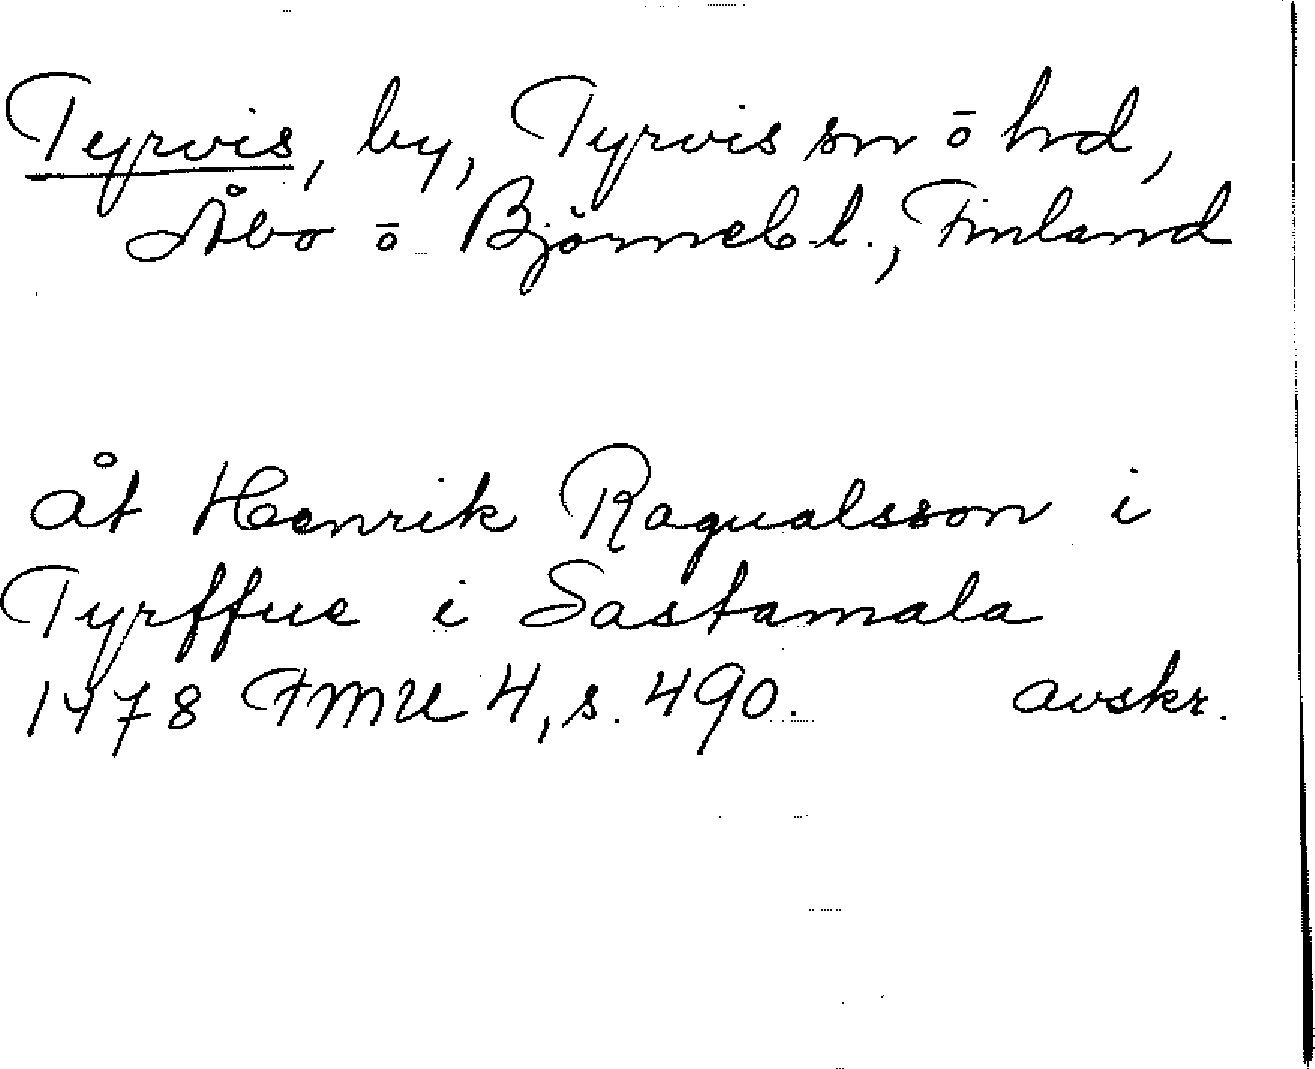 Tyrvis, by, Tyrvis sn ō hd,
Åbo ō Björneb. l., Finland
åt Henrik Ragualsson i
Tyrffue i Sastamala
1478 FMU 4, s. 490. avskr.